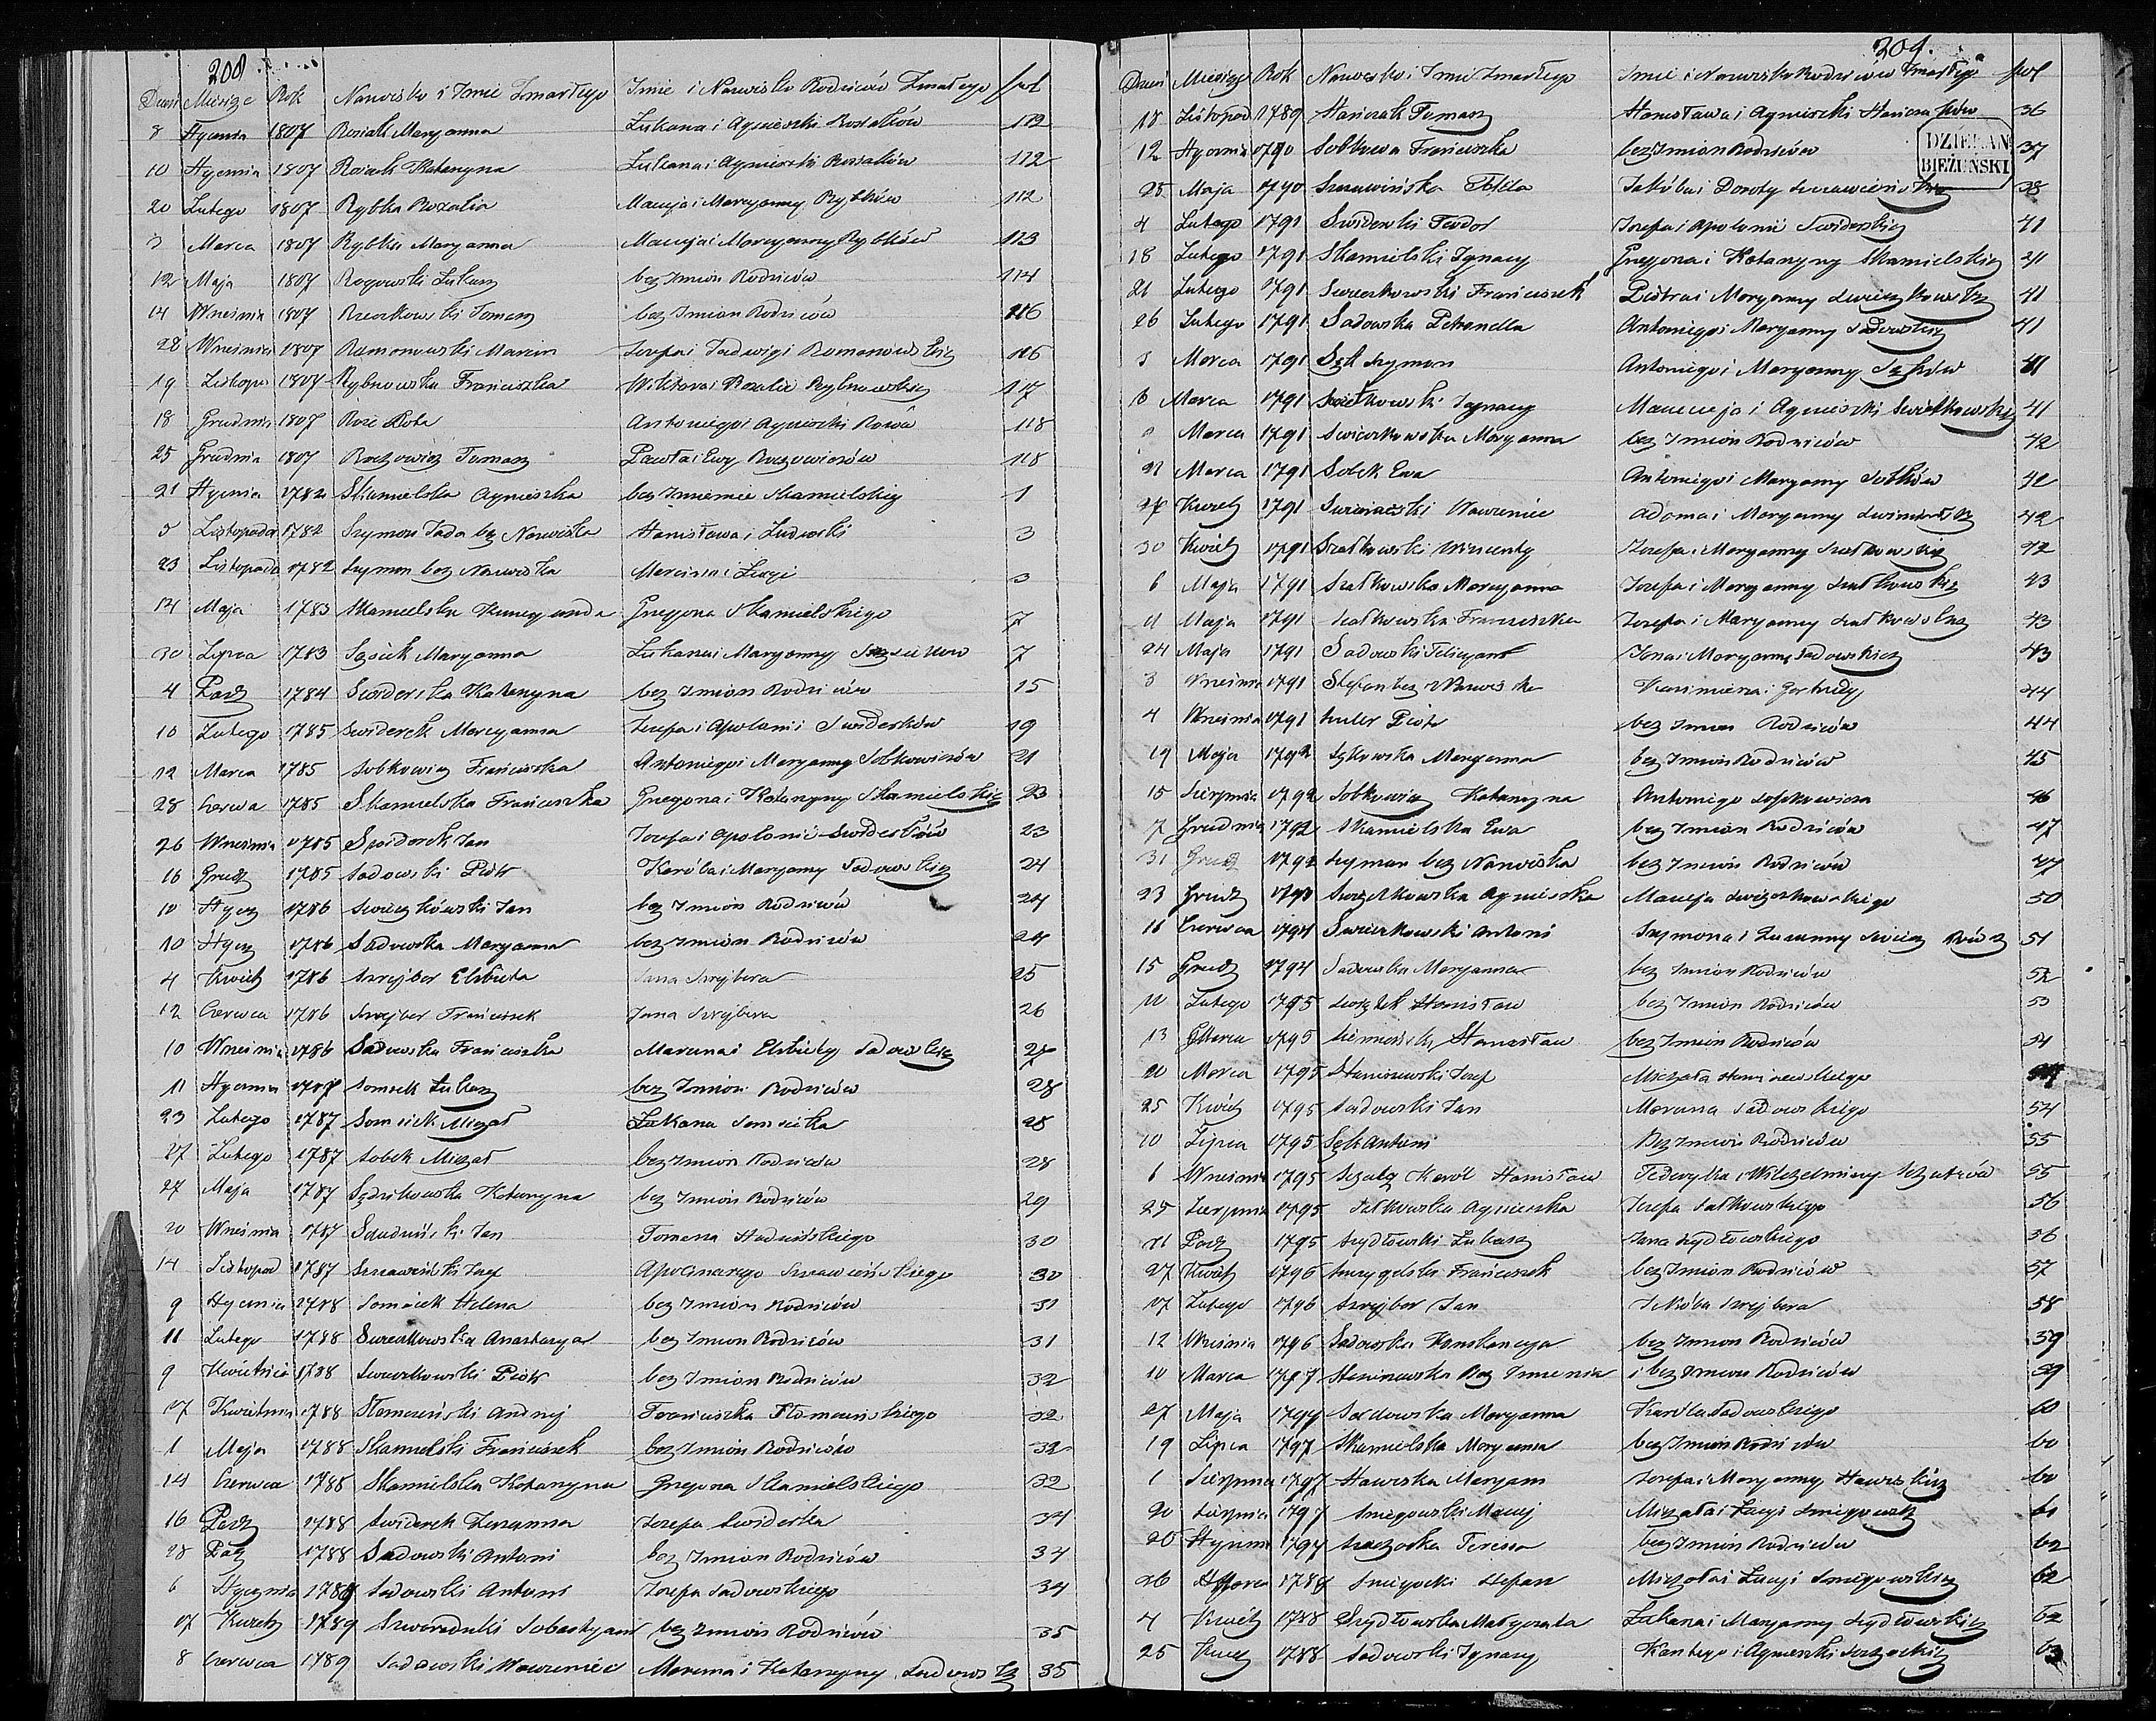 208
Dzień Miesiąc Rok Nazwisko i Imie Zmarłego Imie i Nazwisko Rodziców Zmarłego fol
8 Stycznia 1807 Rosiak Maryanna Łukasza i Agnieszki Rosiaków 112
10 Stycznia 1807 Rosiak Katarzyna Łukasza i Agnieszki Rosiaków 112
20 Lutego 1807 Rybka Rozalia Macieja i Maryanny Rybków 112
3 Marca 1807 Rybka Maryanna Macieja i Maryanny Rybków 113
12 Maja 1807 Rogowski Łukasz bez Imion Rodziców 114
14 Września 1807 Rzeszkowski Tomasz bez Imion Rodziców 116
28 Września 1807 Romanowski Marcin Józefa i Jadwigi Romanowskich 116
19 Listopa 1807 Rybnowska Franciszka Wiktora i Rozalii Rybnowskich 117
18 Grudnia 1807 Antoniego i Agnieszki 118
25 Grudnia 1807 Tomasz Pawła i Ewy 118
21 Stycznia 1782 Skamielska Agnieszka bez Imienia Skamielskich 1
5 Listopada 1782 Szymon Juda bez Nazwiska Stanisława i Ludwiki 3
23 Listopada 1782 Szymon bez Nazwiska Marcina i Łucyi 3
14 Maja 1783 Skamielska Kunegunda Grzegorza Skamielskiego 7
30 Lipca 1783 Sęsiek Maryanna Łukasza i Maryanny 7
4 Paź 1784 Swiderska Katarzyna bez Imion Rodziców 15
10 Lutego 1785 Swiderek Maryanna Józefa i Apolonii Swiderków 19
12 Marca 1785 Sobkowicz Franciszka Antoniego i Maryanny Sobkowiczów 21
28 Czerwca 1785 Skamielska Franciszka Grzegorza i Katarzyny Skamielskich 23
26 Września 1785 Swiderek Jan Józefa i Apolonii Swiderków 23
16 Grudz 1785 Sadowski Piotr Karola i Maryanny Sadowskich 24
10 Stycz 1786 Swieczkowski Jan bez Imion Rodziców 24
10 Stycz 1786 Sadowska Maryanna bez Imion Rodziców 24
4 Kwiet 1786 Szrejber Elżbieta Jana Szrejbera 25
12 Czerwca 1786 Szrejber Franciszek Jana Szrejbera 26
10 Września 1786 Sadowska Franciszka Marcina i Elżbiety Sadowskich 27
11 Stycznia 1787 Somsiek Łukasz bez Imion Rodziców 28
23 Lutego 1787 Somsiek Michał Łukasza Somsieka 28
27 Lutego 1787 Sobek Michał bez Imion Rodziców 28
27 Maja 1787 Sędzikowska Katarzyna bez Imion Rodziców 29
20 Września 1787 Jan Tomasza 30
14 Listopad 1787 Szczawiński Józef Apolinarego Szczawińskiego 30
9 Stycznia 1788 Somsiek Helena bez Imion Rodziców 31
11 Lutego 1788 Swieczkowska Anastazya bez Imion Rodziców 31
9 Kwietnia 1788 Swieczkowski Piotr bez Imion Rodziców 32
17 Kwietnia 1788 Słomczeński Andrzej Franciszka Słomczeńskiego 32
1 Maja 1788 Skamielski Franciszek bez Imion Rodziców 32
14 Czerwca 1788 Skamielska Katarzyna Grzegorza Skamielskiego 32
16 Paź 1788 Swiderek Zuzanna Józefa Swiderka 34
28 Paź 1788 Sadowski Antoni bez Imion Rodziców 34
6 Stycznia 1789 Sadowski Antoni Józefa Sadowskiego 34
17 Kwiet 1789 Sebastyan bez Imion Rodziców 35
8 Czerwca 1789 Sadowski Wawrzeniec Marcina i Katarzyny Sadowskich 35
209.
Dzień Miesiąc Rok Nazwisko i Imie Zmarłego Imie i Nazwisko Rodziców Zmarłego fol
18 Listopad 1789 Stańczak Tomasz Stanisława i Agnieszki Stańczaków 36
12 Stycznia 1790 Sobkowa Franciszka bez Imion Rodziców 37
DZIEKAN
BIEŻUŃSKI
25 Maja 1790 Szczawińska Tekla Jakóba i Doroty Szczawińskich 38
4 Lutego 1791 Swiderski Teodor Józefa i Apolonii Swiderskich 41
18 Lutego 1791 Skamielski Ignacy Grzegorza i Katarzyny Skamielskich 41
21 Lutego 1791 Swieczkowski Franciszek Piotra i Maryanny Swieczkowskich 41
26 Lutego 1791 Sadowska Petronella Antoniego i Maryanny Sadowskich 41
3 Marca 1791 Sęk Szymon Antoniego i Maryanny Sęków 41
6 Marca 1791 Swietkowski Ignacy Macieja i Agnieszki Swietkowskich 41
Marca 1791 Swieczkowska Maryanna bez Imion Rodziców 42
21 Marca 1791 Sobek Ewa Antoniego i Maryanny Sobków 42
Kwiet 1791 Wawrzeniec Adama i Maryanny 42
30 Kwiet 1791 Szałkowski Wincenty Józefa i Maryanny Szałkowskich 42
6 Maja 1791 Szałkowska Maryanna Józefa i Maryanny Szałkowskich 43
11 Maja 1791 Szałkowska Franciszka Józefa i Maryanny Szałkowskich 43
24 Maja 1791 Sadowski Felicyan Jana i Maryanny Sadowskich 43
3 Wrześnie 1791 Stefan bez Nazwiska Kazimierza i Gertrudy 44
4 Września 1791 Szuler Piotr bez Imion Rodziców 44
19 Maja 1792 Sękowska Maryanna bez Imion Rodziców 45
15 Sierpnia 1792 Sobkowicz Katarzyna Antoniego Sobkowicza 46
7 Grudnia 1792 Skamielska Ewa bez Imion Rodziców 47
31 Grudz 1792 Szymon bez Nazwiska bez Imion Rodziców 47
23 Grudz 1793 Swieczkowska Agnieszka Macieja Swieczkowskiego 50
16 Czerwca 1794 Swieczkowski Antoni Szymona i Zuzanny 51
15 Grudz 1794 Sadowska Maryanna bez Imion Rodziców 52
11 Lutego 1795 Stanisław bez Imion Rodziców 53
13 Marca 1795 Stanisław bez Imion Rodziców 54
20 Marca 1795 Staniszewski Józef Michała Staniszewskiego
25 Kwiet 1795 Sadowski Jan Marcina Sadowskiego 54
10 Lipca 1795 Sęk Antoni Bez Imion Rodziców 55
6 Wrześnie 1795 Karól Stanisław 55
25 Sierpnia 1795 Sałkowska Agnieszka Józefa Sałkowskiego 56
11 Paź 1795 Szydłowski Łukasz Jana Szydłowskiego 56
27 Kwiet 1796 Franciszek bez Imion Rodziców 57
17 Lutego 1796 Szrejber Jan Jakóba Szrejbera 58
12 Września 1796 Sadowska Konstancya bez Imion Rodziców 59
10 Marca 1797 Bez Imienia i bez Imion Rodziców 59
27 Maja 1797 Sadowska Maryanna Karóla Sadowskiego 60
19 Lipca 1797 Skamielska Maryanna bez Imion Rodziców 60
1 Sierpnia 1797 Stawiska Maryann Józefa i Maryanny Stawiskich 60
20 Sierpnia 1797 Śmigowski Maciej Michała i Łucyi Śmigowsk 61
20 Stycznia 1797 Teressa bez Imion Rodziców 62
26 Marca 1788 Stefan Michała i Łucyi Śmigowskich 62
4 Kwiet 1788 Szydłowska Małgorzata Łukasza i Maryanny Szydłowskich 62
25 1788 Sadowski Ignacy Kantego i Agnieszki 63